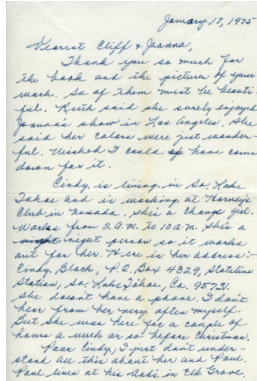 January 17, 1975
Dearest Cliff & Joanna,
Thank you so much for
the book and the picture of your
work. So of them must be beauti-
ful. Ruth said she surely enjoyed
Joanna's show in Los Angeles. She
said her colors were just wonder-
ful. Wished I could have come
down for it.
Cindy is living in So. Lake
Tahoe and is working at Harvey's
Club in Nevada. She's a Change girl.
Works from 2 A.M. to 10 A.M. She's a
night person so it works
out for her. Here is her address:-
Cindy Black, P.O. Box 4329, Stateline
Station, So. Lake Tahoe, Ca. 95731.
She doesn't have a phone. I don't
hear from her very often myself.
But she was here for a couple of
hours a week or so before Christmas.
Poor Cindy, I just don't under-
stand all this about her and Paul.
Paul lives at his Aunts in Elk Grove,